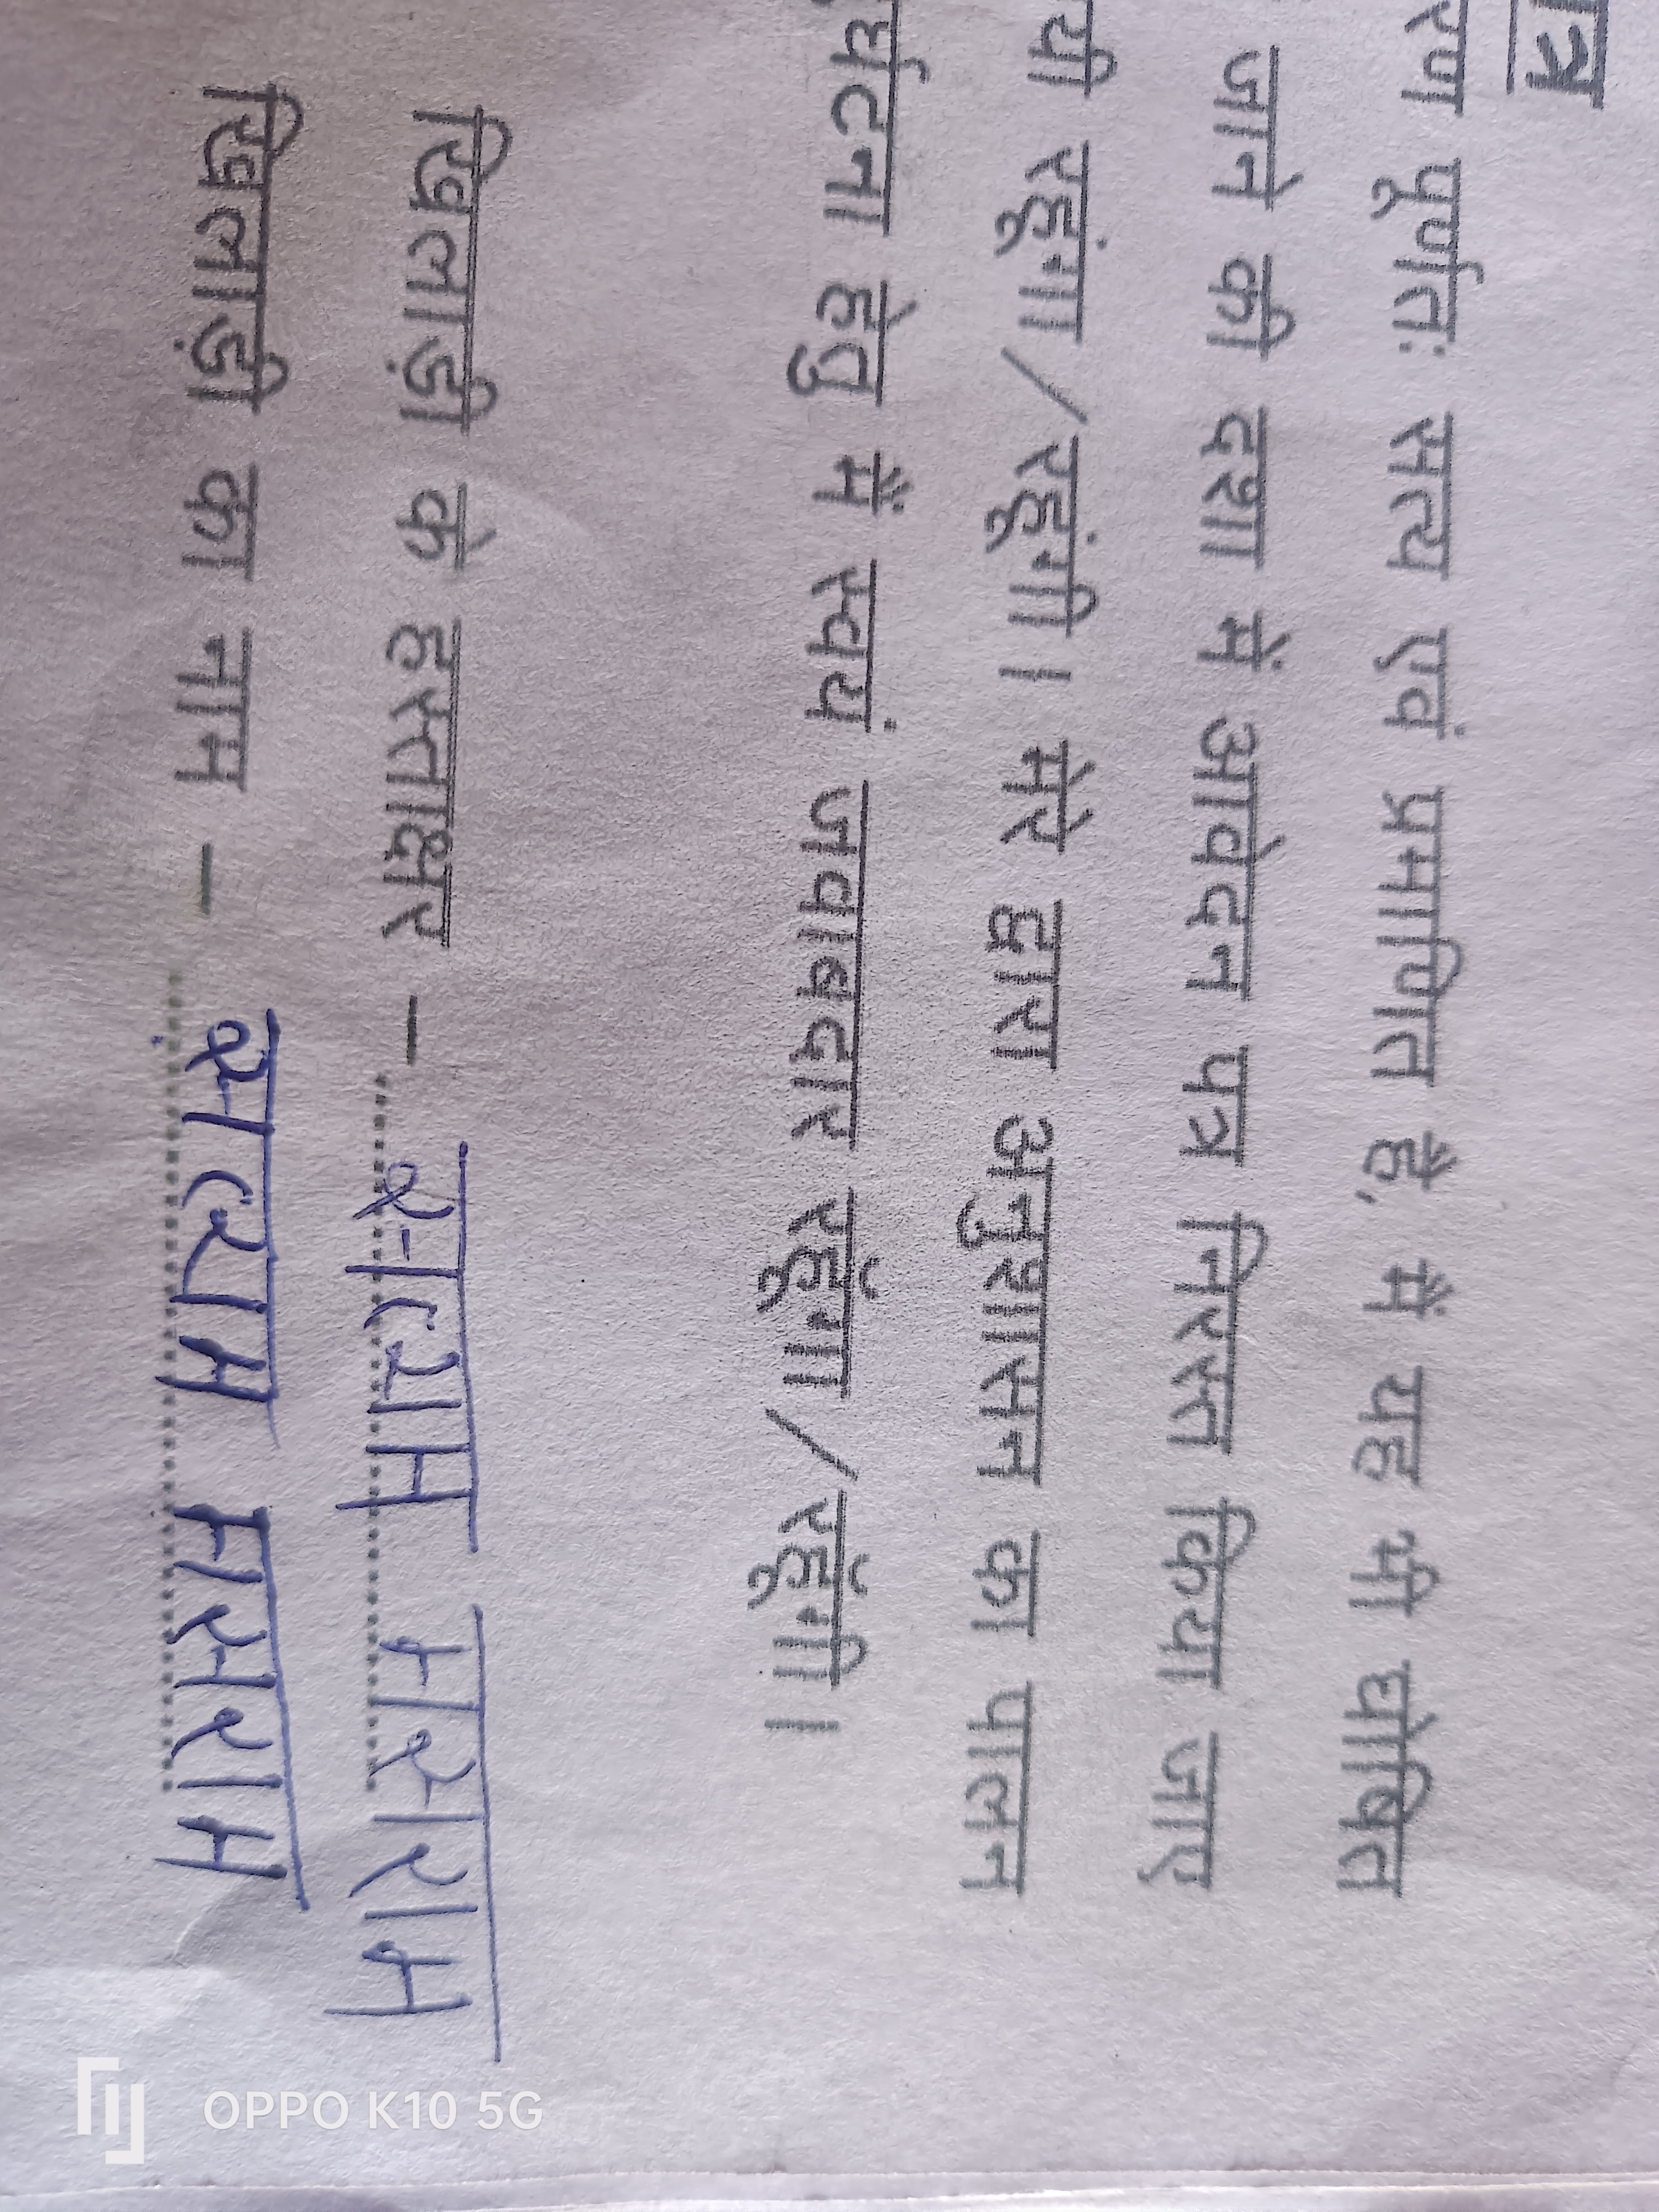 पूर्णतः सत्य एवं प्रमाणित है, मैं यह भी घोषित
जाने की दशा में आवेदन पत्र निरस्त किया जाए
रहूंगा/रहूंगी। मेरे द्वारा अनुशासन का पालन
हेतु मैं स्वयं जवाबदार रहूँगा/रहूँगी।
खिलाड़ी के हस्ताक्षर – सत्यम मसराम
खिलाड़ी का नाम – सत्यम मसराम
OPPO K10 5G